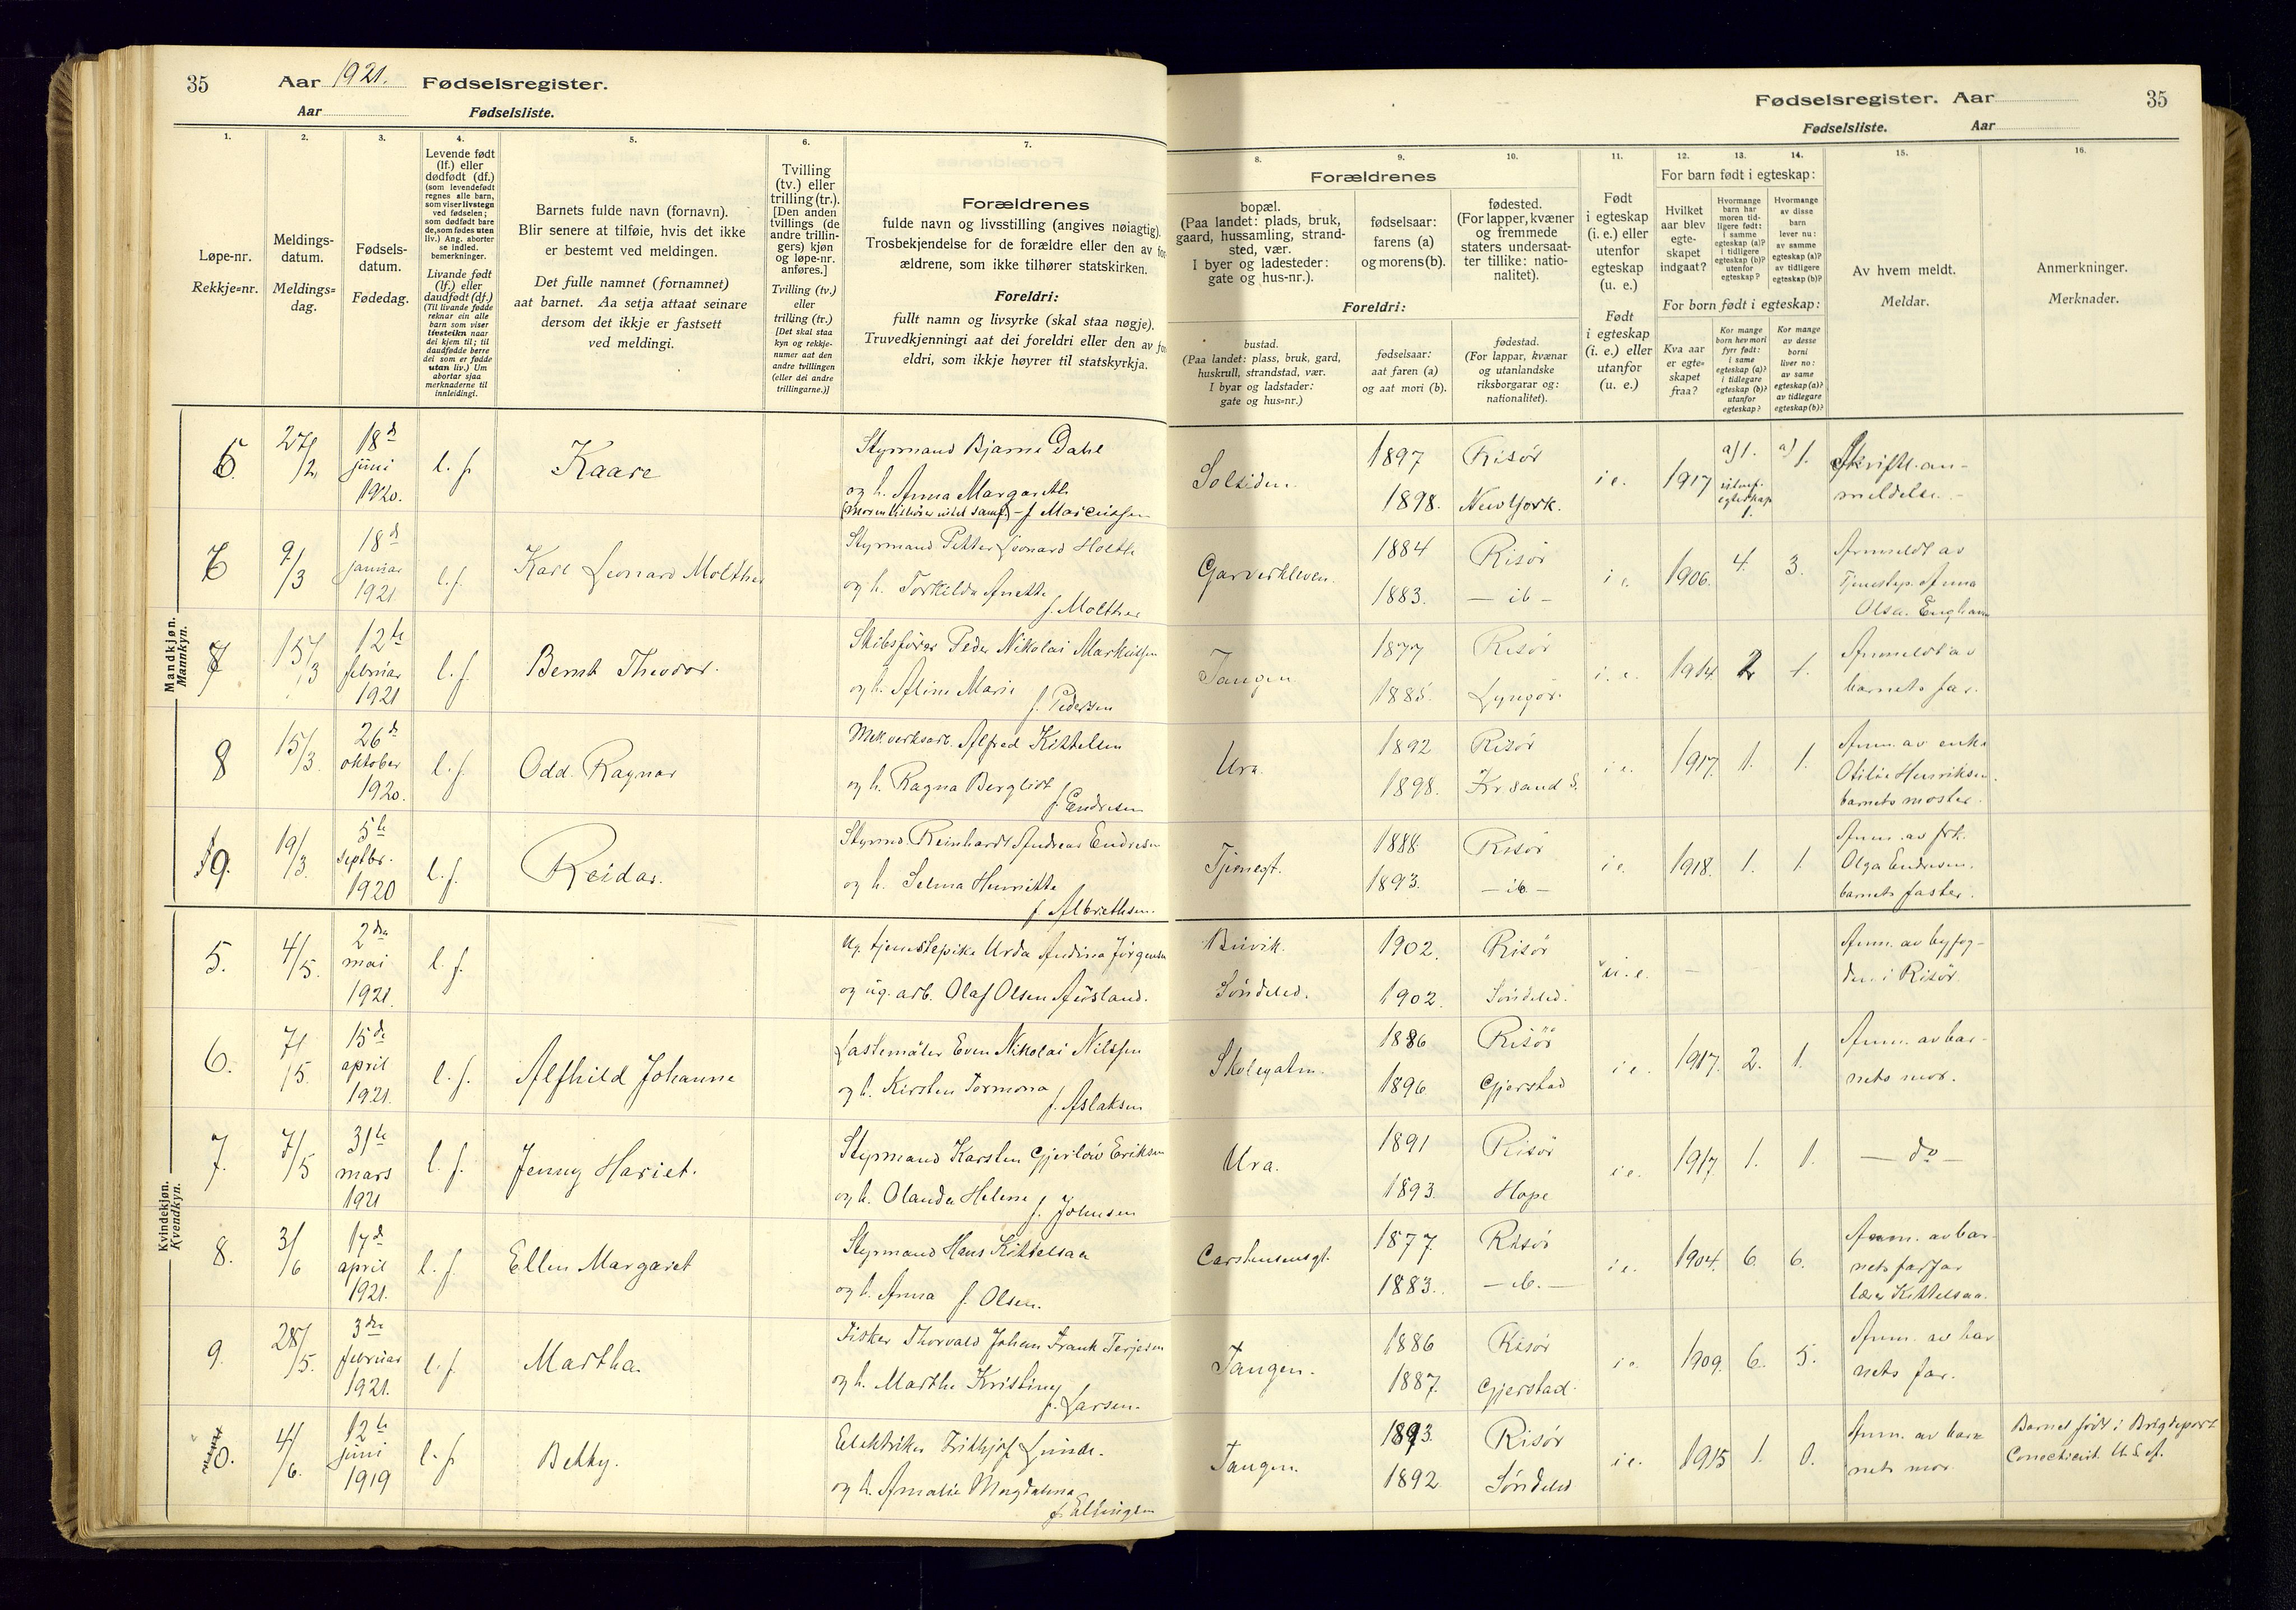 35 Aar 1921. Fødselsregister.
Aar Fødselsliste.
Fødselsregister. Aar 35
Fødselsliste. Aar
1. 2. 3. 4. 5. 6. 7. 8. 9. 10. 11. 12. 13. 14. 15. 16.
Løpe-nr.
Rekkje=nr.
Meldings-
datum.
Meldings=
dag.
Fødsels-
datum.
Fødedag.
Levende født
(lf.) eller
dødfødt (df.)
(som levendefødt
regnes alle barn,
som viser livstegn
ved fødselen;
som dødfødt bare
de, som fødes uten
liv.) Ang. aborter
se indled.
bemerkninger.
Livande født
(lf.) eller
daudfødt (df.)
(Til livande fødde
reknar ein alle
barn som viser
livsteikn naar
dei kjem til; til
daudfødde berre
dei som er fødde
utan liv.) Um
abortar sjaa
merknaderne til
innleidingi.
Barnets fulde navn (fornavn).
Blir senere at tilføie, hvis det ikke
er bestemt ved meldingen.
Det fulle namnet (fornamnet)
aat barnet. Aa setja attaat seinare
dersom det ikkje er fastsett
ved meldingi.
Tvilling
(tv.) eller
trilling (tr.).
[Den anden
tvillings (de
andre trillin-
gers) kjøn
og løpe-nr.
anføres.]
Tvilling (tv.)
eller
trilling (tr.)
[Det skal staa
kyn og rekkje-
numer aat den
andre tvillingen
(eller dei andre
trillingarne.)]
Forældrenes
fulde navn og livsstilling (angives nøiagtig).
Trosbekjendelse for de forældre eller den av for
ældrene, som ikke tilhører statskirken.
Foreldri:
fullt namn og livsyrke (skal staa nøgje).
Truvedkjenningi aat dei foreldri eller den av for
eldri, som ikkje høyrer til statskyrkja.
Forældrenes
bopæl.
(Paa landet: plads, bruk,
gaard, hussamling, strand-
sted, vær.
I byer og ladesteder:
gate og hus-nr.).
fødselsaar:
farens (a)
og morens (b).
fødested.
(For lapper, kvæner
og fremmede
staters undersaat-
ter tillike: natio-
nalitet).
Foreldri:
bustad.
(Paa landet: plass, bruk, gard,
huskrull, strandstad, vær.
I byar og ladstader:
gate og hus=nr.)
fødselsaar:
aat faren (a)
og aat mori (b).
fødestad.
(For lappar, kvænar
og utanlandske
riksborgarar og:
nationalitet).
Født
i egteskap
(i. e.) eller
utenfor
egteskap
(u. e.)
Født
i egteskap
(i. e.) eller
utanfor
(u. e.)
For barn født i egteskap:
Hvilket
aar blev
egte-
skapet
indgaat?
Hvormange
barn har
moren tid-
ligere født:
i samme
egteskap (a)?
i tidligere
egteskap (b)?
utenfor
egteskap?
Hvormange
av disse
barn
lever nu:
av samme
egteskap (a)?
av tidligere
egteskap (b)?
For born født i egteskap:
Kva aar
er egte-
skapet
fraa?
Kor mange
born hev mori
fyrr født:
i same
egteskap (a)?
i tidlegare
egteskap (b)?
utanfor
egteskap?
Kor mange
av desse
borni
liver no:
av same
egteskap (a)?
av tidlegare
egteskap (b)?
Av hvem meldt.
Meldar.
Anmerkninger.
Merknader.
Mandkjøn.
Mannkyn.
18d
juni
1920.
l. f.
Kaare
Styrmand Bjarne Dahl
og h. Anna Margareth
Solsiden. 1897 Risör
1898. New York.
i e. 1917 a) 1. a) 1.
utenf.
egteskap
1.
Skriftl. an-
meldelse.
9/3
18d
januar
1921
l. f.
Karl Leonard Molther
Styrmand Petter Leonard Holth
og h. Torkilda Anette
f. Molther
Garverkleven. 1884 Risör
1883. — ib —
i e. 1906. 4. 3.
Anmeldt av
Tjenestep. Anna
7
15/3
12te
februar
1921
l. f.
Bernt Theodor.
Skibsförer Peder Nikolai Markussen
og h. Aline Marie
f. Pedersen
Tangen 1877 Risör
1885. Lyngör.
i. e. 1914 2 1.
Anmeldt av
barnets far.
8
15/3.
26d
oktober
1920.
l. f.
Odd Ragnar
Mek. verksarb. Alfred Kittelsen
og h. Ragna Bergliot
f. Endresen
Ura. 1892 Risör
1898. Kr. sand S.
i e. 1917. 1. 1.
Anm. av enke
Otilie Henriksen.
barnets moster.
9.
19/3.
5te
septbr.
1920
l. f.
Reidar.
Styrmd. Reinhardt Andreas Endresen
og h. Selma Henriette
f. Albrethsen.
Tjennegt. 1888 Risör
1893. — ib —
i e. 1918. 1. 1.
Anm. av frk.
Olga Endresen.
barnets faster.
Kvindekjøn.
Kvendkyn.
5.
4/5.
2den
mai
1921.
l. f.
Ug. tjenestepike Urda Andina Jörgensen
og ug. arb. Olaf Olsen Aösland.
Buvik. 1902. Risör
Söndeled. 1902. Söndeled.
u. e. —
Anm. av byfog-
den i Risör.
6.
7/5.
15de
april
1921.
l. f.
Alfhild Johanne
Lastemåler Even Nikolai Nilssen
og h. Kirsten Tormona
f. Aslaksen
Skolegaten. 1886 Risör
1896 Gjerstad
i e. 1917. 2. 1.
Anm. av bar-
nets mor.
7.
7/5
31te
mars
1921
l. f.
Jenny Hariet.
Styrmand Karsten Gjerlöw Eriksen
og h. Olanda Helene f. Johnsen
Ura. 1891 Risör
1893. Hope
i e. 1917. 1. 1.
— do —
8.
3/6
17d
april
1921.
l. f.
Ellen Margaret
Styrmand Hans Kittelsaa
og h. Anna f. Olsen.
Carstensensgt. 1877. Risör
1883. — ib. —
i e. 1904. 6. 6.
Anm. av bar-
nets farfar
lærer Kittelsaa.
9.
28/5.
3die
februar
1921.
l. f.
Martha.
Fisker Thorvald Johan Frank Terjesen
og h. Marthe Kristine
f. Larsen.
Tangen. 1886 Risör
1887. Gjerstad.
i e. 1909. 6. 5.
Anm. av bar
nets far.
4/6.
12te
juni
1919
l. f.
Betty.
Elektriker Frithjof Lunde.
og h. Amalie Magdalena
f. Ellingsen
Tangen. 1893. Risör
1892 Söndeled
i e. 1915 1. 0.
Anm. av bar
nets mor
Barnet født i Bridgeport
Conecticut U. S. A.